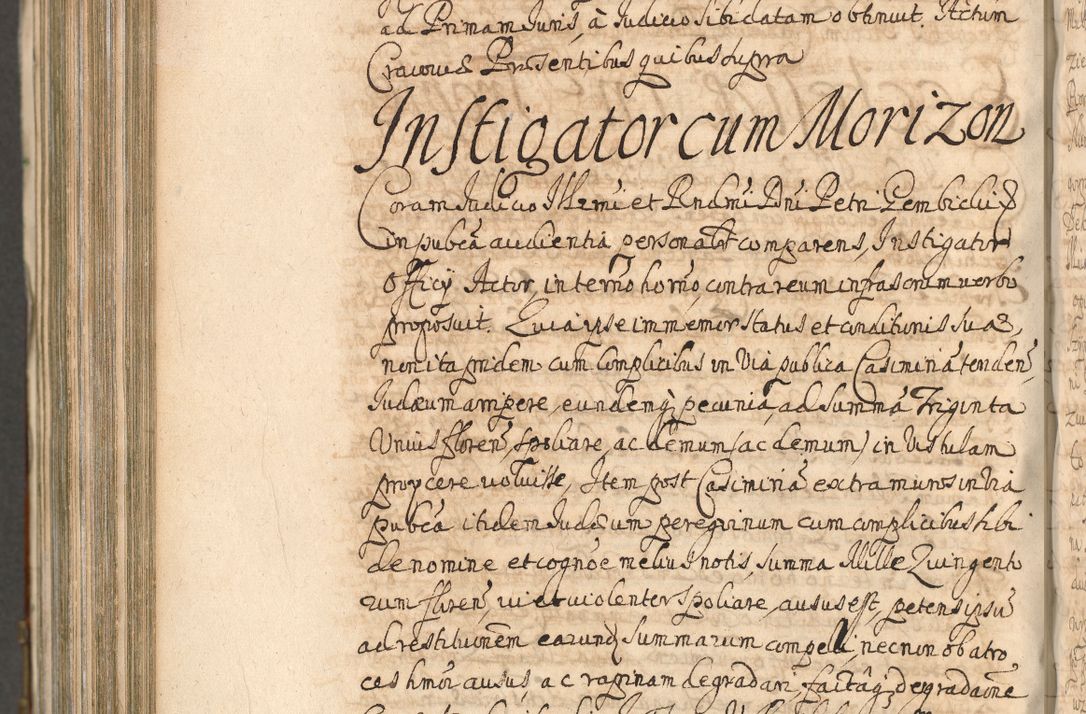 ad Primam Juris, à Judicio sibi datam obtinuit. Actum
Cracoviæ Præsentibus quibus supra
Instigator cum Morizon
Coram Judicio Illrmi et Rndmi Dni Petri Gembicki &
in pubca audientia personalr comparens, Instigator
Officij Actor, in termo horno, contra reum infrascrm verbo
proposuit. Quia ipse immemor status et conditionis suæ,
non ita pridem cum complicibus in via publica Casimiria tenden
Judæum arripere, eundemq pecunia, ad summa Triginta
Unius floren, spoliare, ac demum (ac demum) in Vistulam
projcere voluisse, Item post Casimiria extra muros in via
pubca itidem Judæum peregrinum cum complicibus sibi
de nomine et cognoe melius notis, summa Mille Quingento
rum floren, vi et violenter spoliare, ausus est, petens ipsu
ad restitutionem earundq summarum compelli, nec non ob atro
ces hmoi ausus, ac rapinam degradari, factaq degradaone